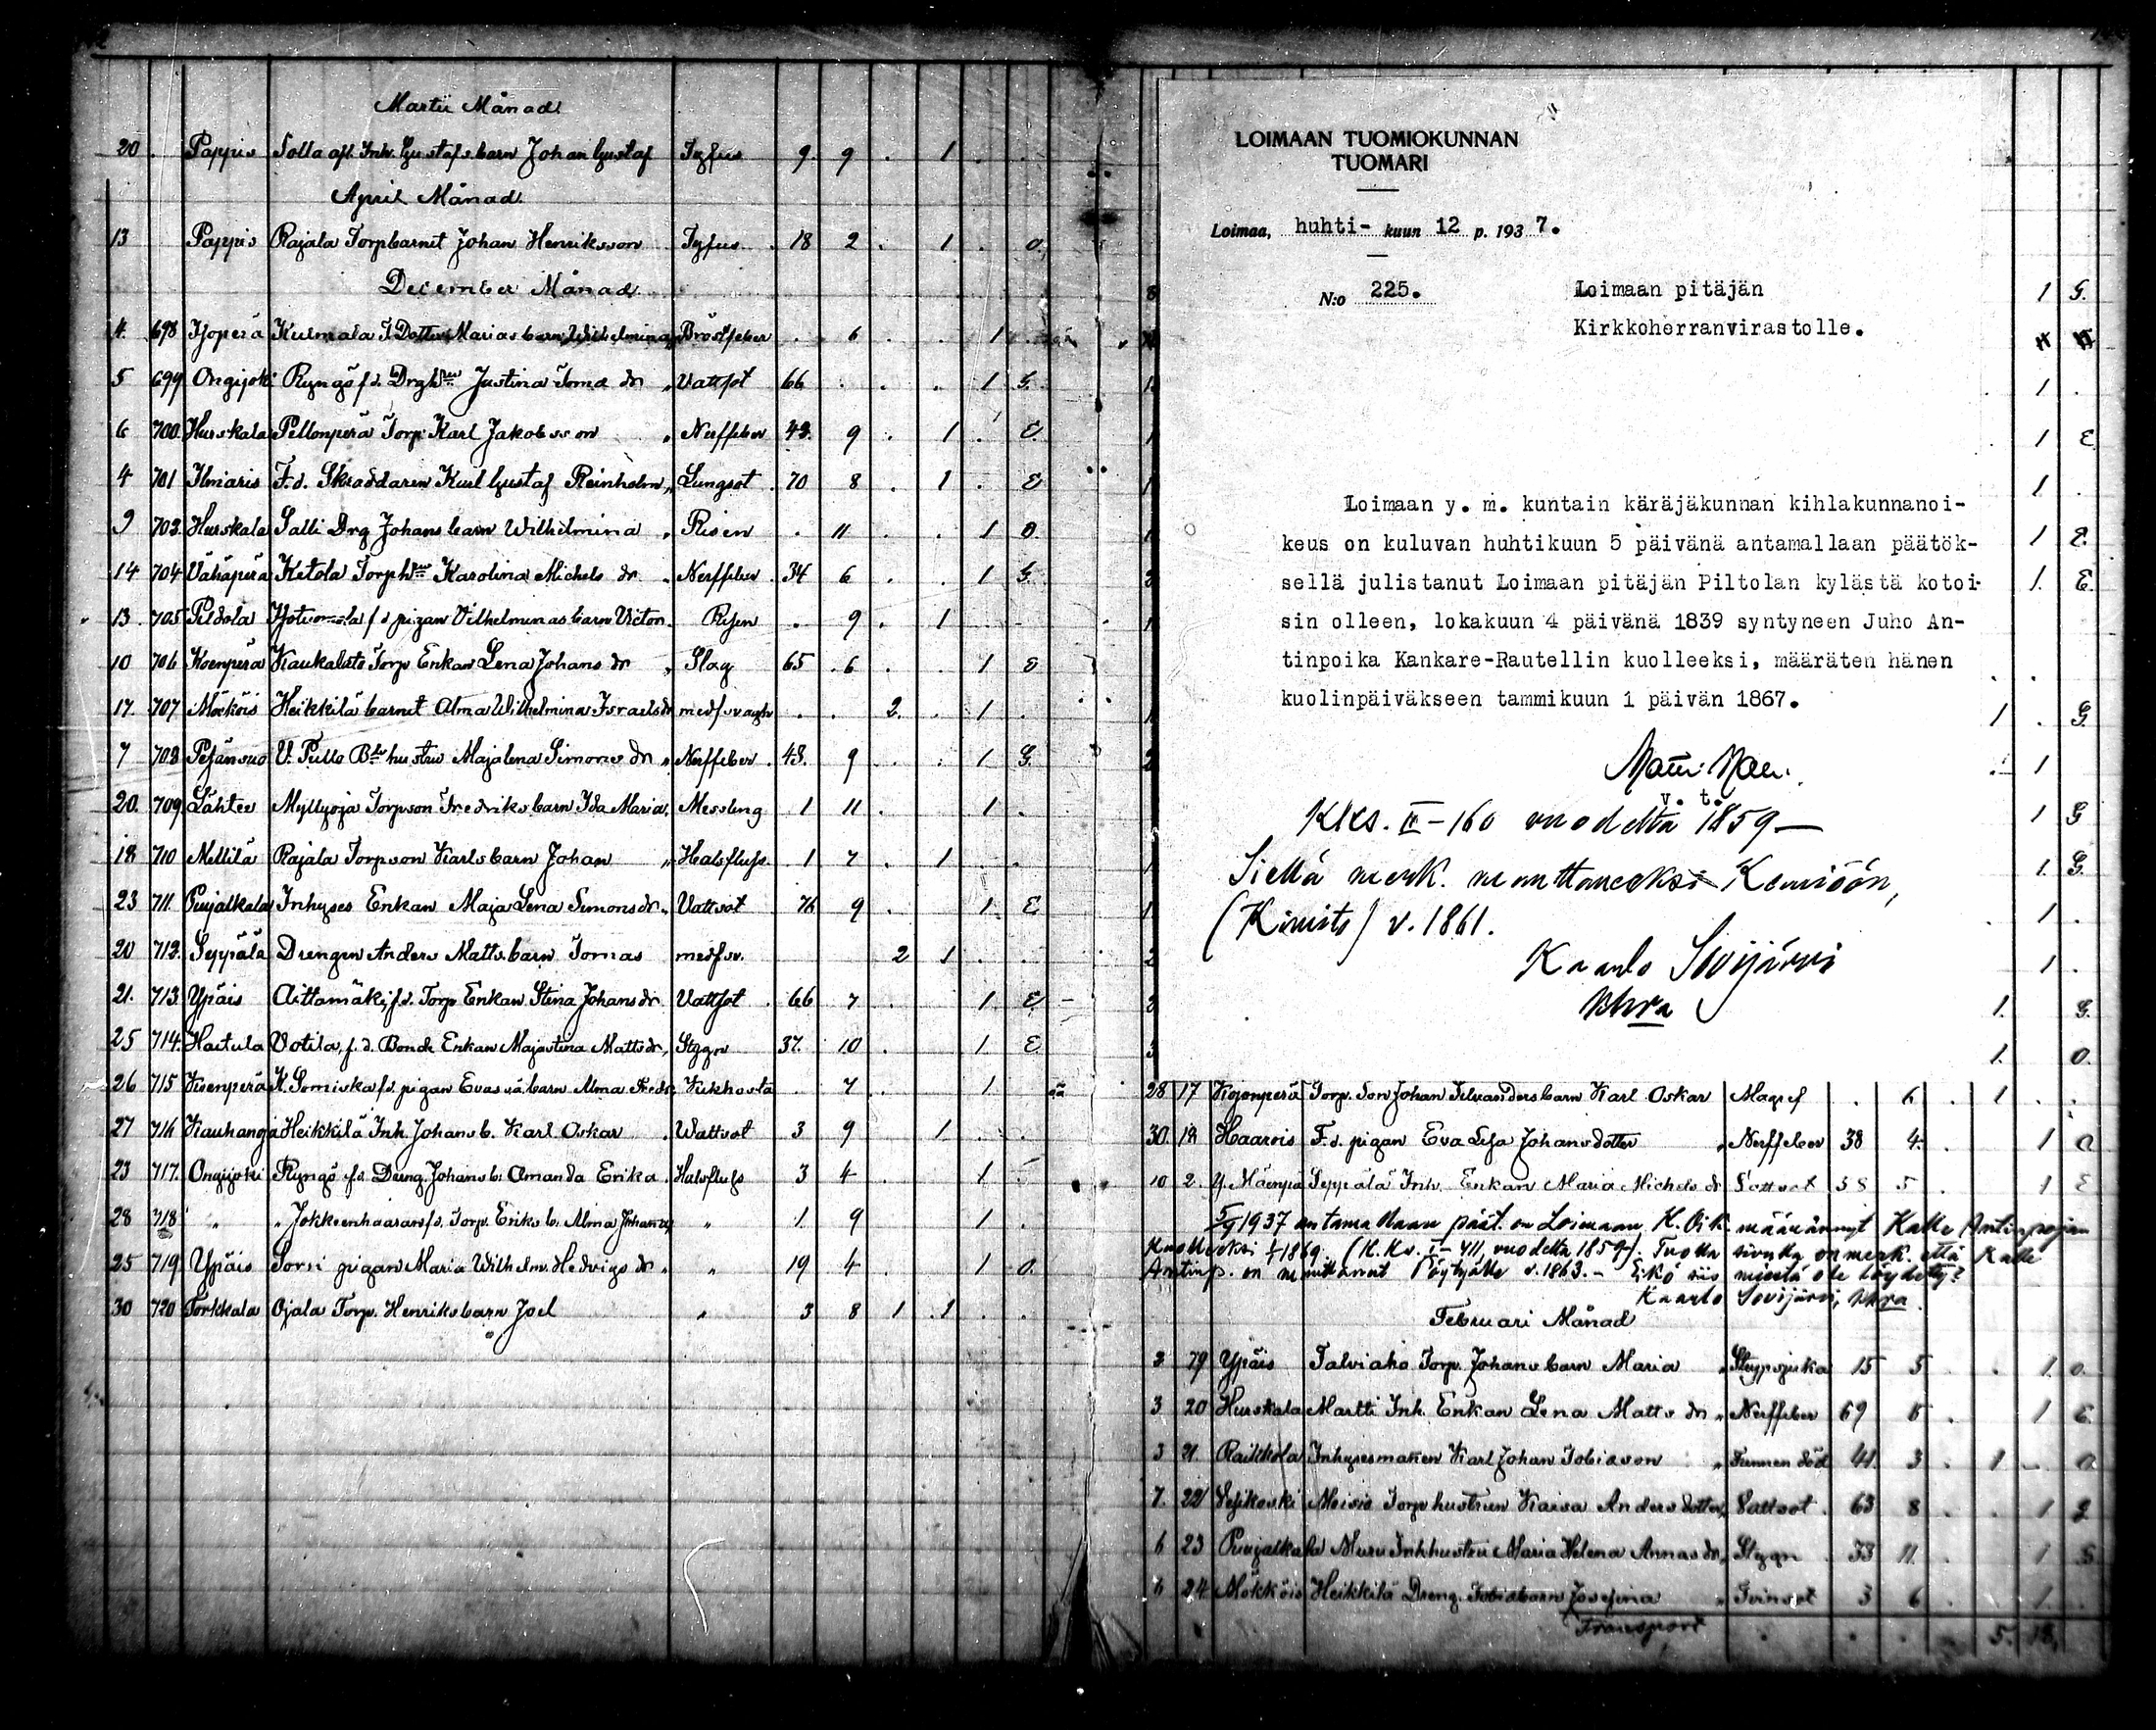 Martii Månad
20 Pappis Solla afl. Inh. Gustafs barn Johan Gustaf Tyfus 9. 9 1
April Månad
13 Pappis Rajala Torpbarnet Johan Henriksson Tyfus 18 2 1 O.
December Månad
4. 698 Kojoperä Kulmala Dotter Marias barn Wilhelmina Bröstfeber 6 1
5 699 Ongijoki Ryngö f.d. Drg Justina Toma dr Vattsot 66 1 G.
6 700. Hurskala Pellonperä Torp. Karl Jakobsson Nerffeber 43. 9 1 E.
4 701 Ilmaris F.d. Skräddaren Karl Gustaf Reinholm Lungsot 70 8 1 E
9 702. Hurskala Salli Drg Johans barn Wilhelmina Risen 11 1 O.
14 704 Vähäperä Ketola Torph Karolina Michels dr Nerffeber 34 6 1 G.
13 705 Pildola f.d. pigan Vilhelminas barn Victor Risen 9 1
10 706 Koenperä Torp. Enkan Lena Johans dr Slag 65 6 1
17. 707 Mökköis Heikkilä barnet Alma Wilhelmina Israels dr medf. svagh. 2. 1
7 708 Pesänsuo U. Pullo hustru Majalena Simons dr Nerffeber 43. 9 1 G.
20. 709 Lähtee Myllyoja Torpson Fredriks barn Ida Maria Messling 1 11 1
18 710 Mellilä Rajala Torpson Karls barn Johan Halsfluss 1 7 1
23 711. Puujalkala Inhyses Enkan Maja Lena Simons dr Vattsot 76 9 1 E
20 712. Seppälä Drengen Anders Matts. barn Tomas medf. sv. 2 1
21. 713 Ypäis Aittamäki, f.d. Torp Enkan Stina Johans dr Vattsot 66 7 1 E
25 714. Haitula Votila, f.d. Bonde Enkan Majastina Matts dr Stygn 37. 10 1 E
26 715 Koenperä f.d. pigan Evas oä. barn Alma Kikhosta 7 1
27 716 Kauhanoja Heikkilä Inh. Johans b. Karl Oskar Wattsot 3 9 1
23 717. Ongijoki Ryngö f.d. Dreng. Johans b. Amanda Erika Halsfluss 3 4 1
28 718 " " f.d. Torp. Eriks b. Alma Johanna " 1 9 1
25 719 Ypäis Sorri pigan Maria Wilhelm. Hedvigs dr " 19 4 1 O.
30 720 Torkkala Ojala Torp. Henriks barn Joel " 3 8 1 1
LOIMAAN TUOMIOKUNNAN
TUOMARI
Loimaa, huhti- kuun 12 p. 193 7.
N:o 225.
Loimaan pitäjän
Kirkkoherranvirastolle.
Loimaan y. m. kuntain käräjäkunnan kihlakunnanoi-
keus on kuluvan huhtikuun 5 päivänä antamallaan päätök-
sellä julistanut Loimaan pitäjän Piltolan kylästä kotoi-
sin olleen, lokakuun 4 päivänä 1839 syntyneen Juho An-
tinpoika Kankare-Rautellin kuolleeksi, määräten hänen
kuolinpäiväkseen tammikuun 1 päivän 1867.
v. t.
Kks. II-160 vuodelta 1859—
Siellä merk. muuttaneeksi Kemiöön,
(Kimito) v. 1861.
Kaarlo Sovijärvi
khra
28 17 Kojonperä Torp. Son Johan barn Karl Oskar Magref 6 1
30. 18 Haarois F.d. pigan Eva Lisa Johansdotter Nerffeber 38 4. 1 O
10 2. Y. Mäenpä Seppälä Inh. Enkan Maria Michels dr Vattsot 58 5 1 E
5/4 1937 antamallaan päät. on Loimaan K. Oik. määrännyt Kalle Antinpojan
kuolleeksi 1/1 1869. (K.Kv. I-411, vuodelta 1859). Tuolla sivulla on merk. että Kalle
Antinp. on muuttanut Pöytyälle v. 1863. — Eikö siis miestä ole löydetty?
Kaarlo Sovijärvi, khra.
Februari Månad
3 19 Ypäis Talviaho Torp. Johans barn Maria 15 5 1. O.
3 20 Hurskala Martti Inh. Enkan Lena Matts dr Nerffeber 69 6 1 E.
3 21. Raikkola Inhysesmannen Karl Johan Tobiason Funnen död 41 3 1 O.
7. 22 Vesikoski Moisio Torp hustrun Kaisa Anders dotter Vattsot 63 8 1 G
6 23 Puujalkala Muru Inhhustru Maria Helena Annas dr Stygn 33 11 1 G
6 24. Mökköis Heikkilä Dreng. Tobias barn Josefina Tvinsot 3 6 1.
Transport 5. 18.